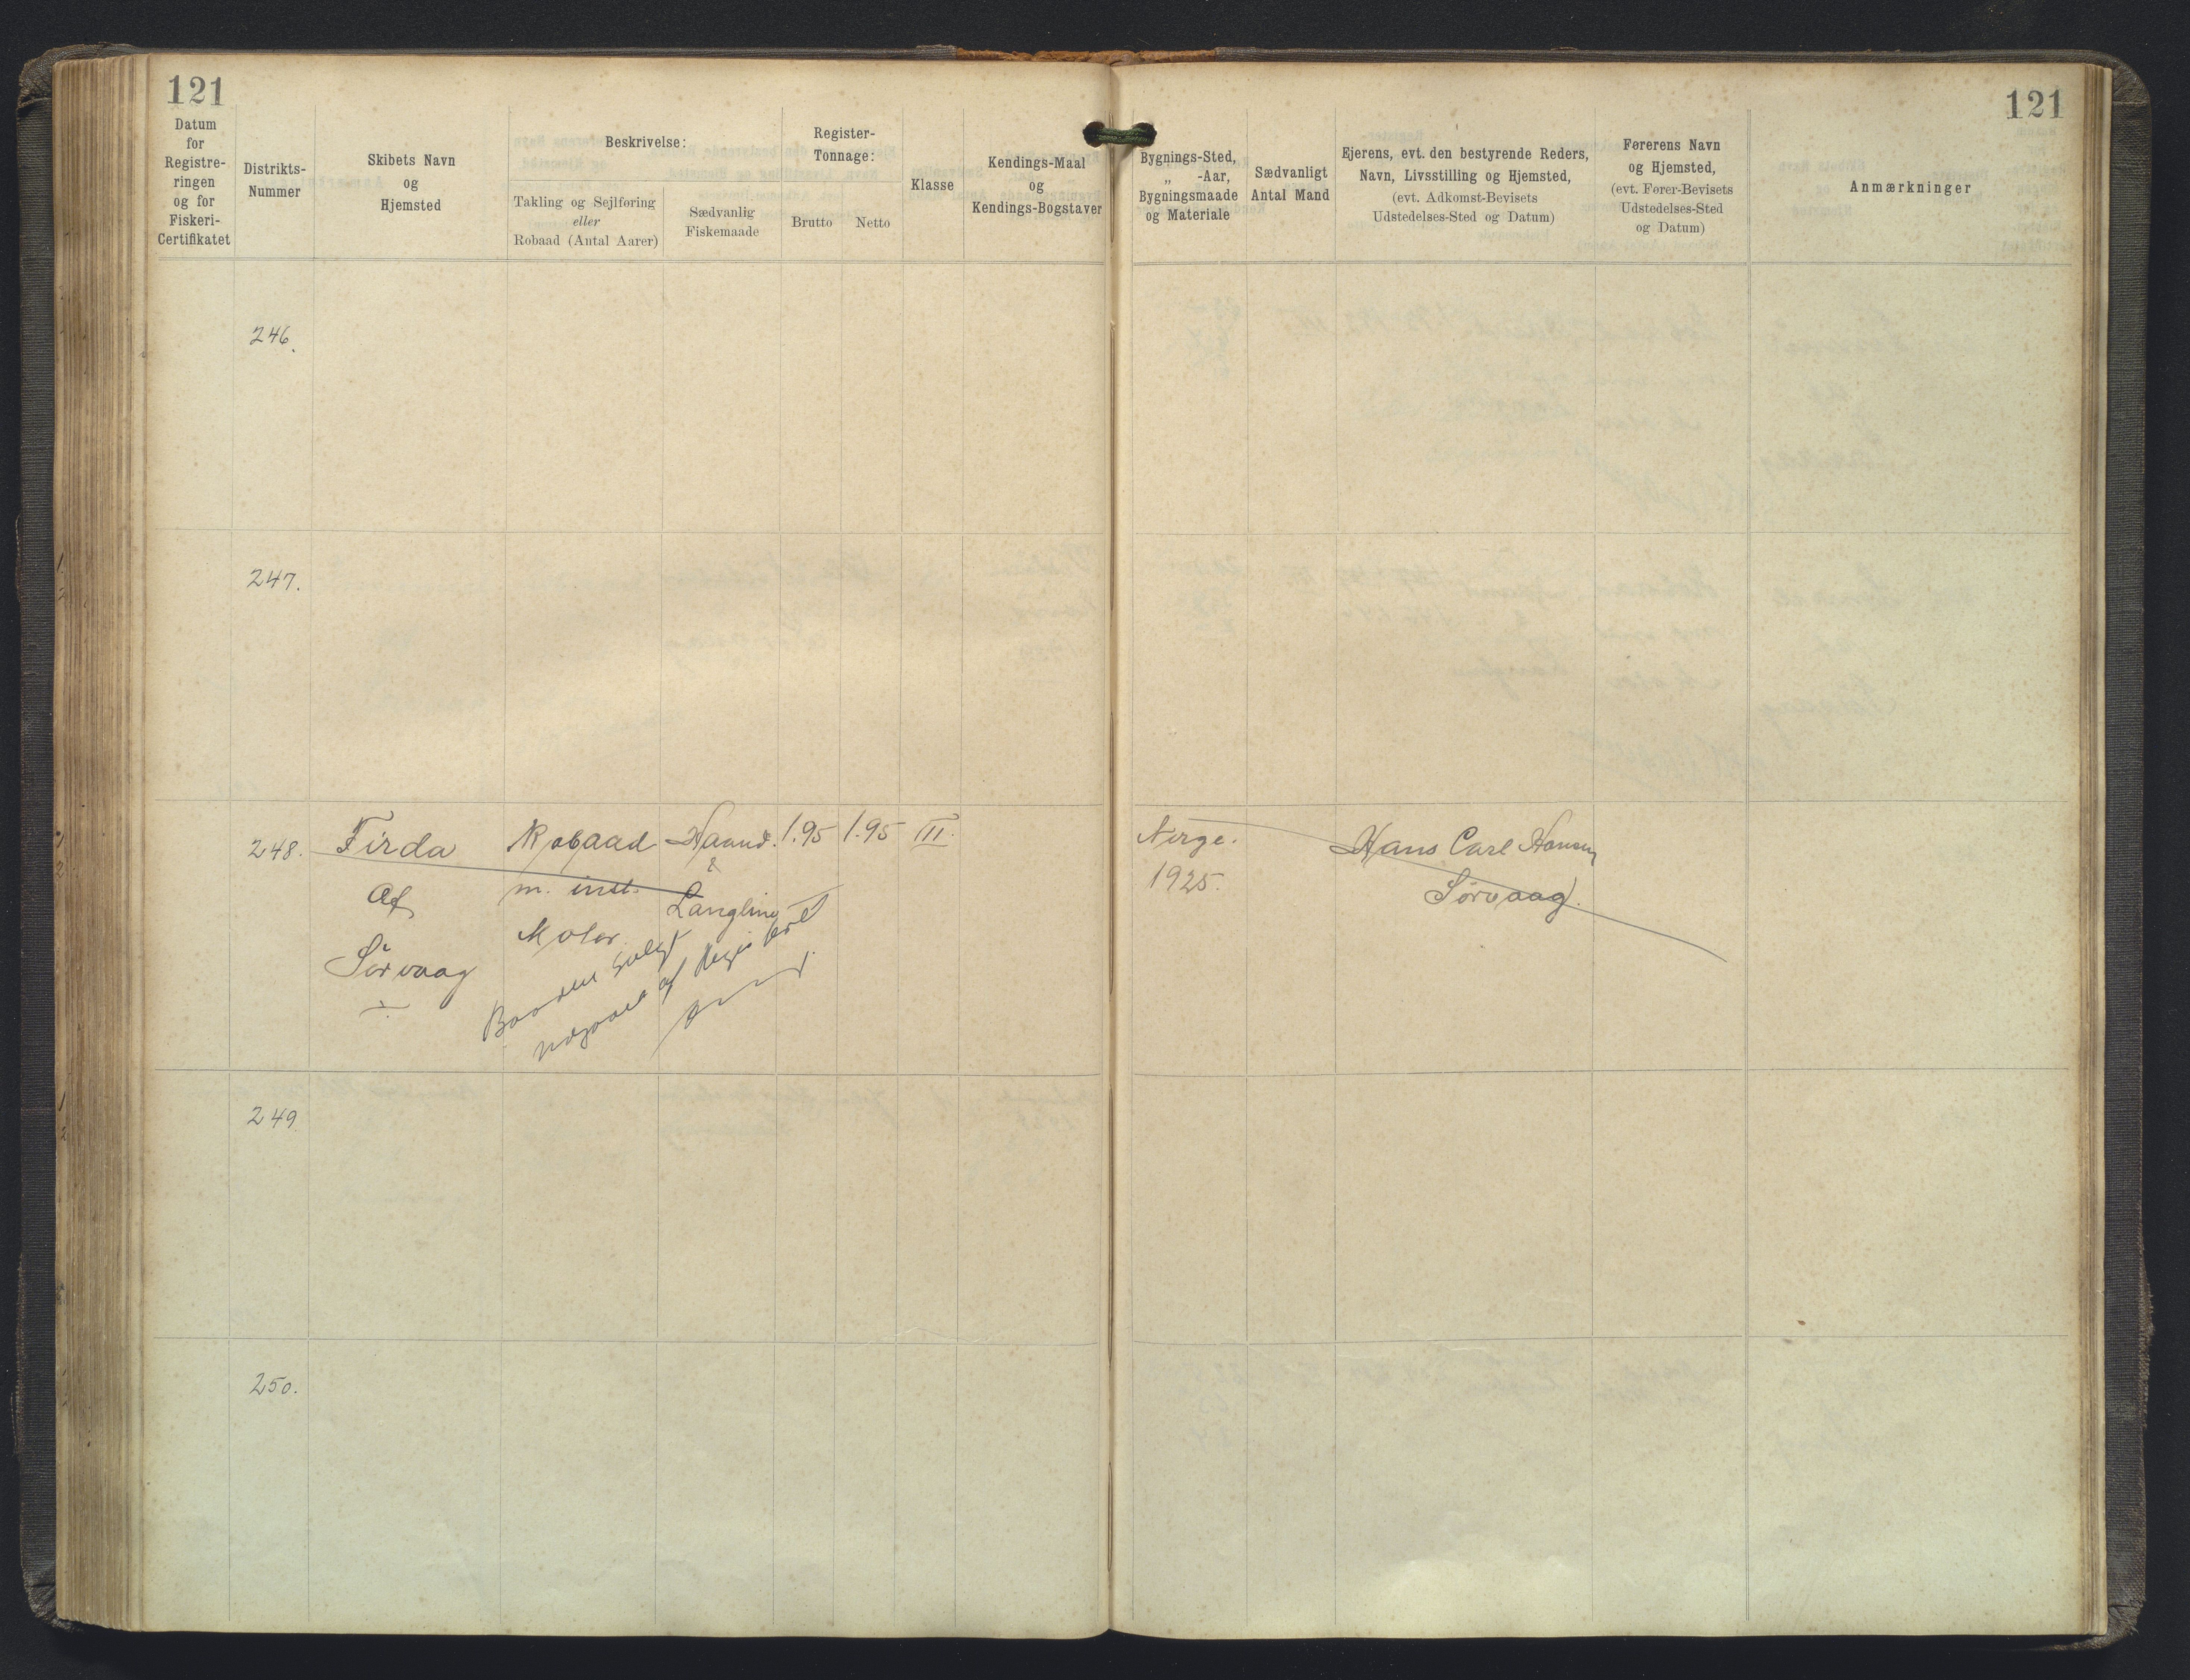 121
121
Datum
for
Registre-
ringen
og for
Fiskeri-
Certifikatet
Distrikts-
Nummer
Skibets Navn
og
Hjemsted
Beskrivelse:
Takling og Sejlføring
eller
Robaad (Antal Aarer)
Sædvanlig
Fiskemaade
Register-
Tonnage:
Brutto
Netto
Klasse
Kendings-Maal
og
Kendings-Bogstaver
Bygnings-Sted,
„ -Aar,
Bygningsmaade
og Materiale
Sædvanligt
Antal Mand
Ejerens, evt. den bestyrende Reders,
Navn, Livsstilling og Hjemsted,
(evt. Adkomst-Bevisets
Udstedelses-Sted og Datum)
Førerens Navn
og Hjemsted,
(evt. Fører-Bevisets
Udstedelses-Sted
og Datum)
Anmærkninger
246.
247.
248. Firda Robaad Haand. 1.95 1.95 III. Norge. Hans Carl Hansen
&
af m. inst. Langline 1925. Sørvaag.
Motor
Sørvaag
Baaden solgt
udgaaet af Registeret
249
250.